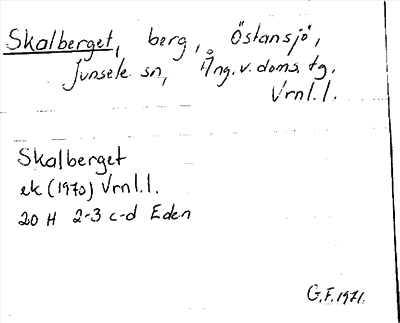 Skalberget, berg, Östansjö,
Junsele sn, Ång. v. doms. tg.
Vrnl.l.
Skalberget
ek (1970) Vrnl.l.
20 H 2-3 c-d Eden
G.F. 1971.